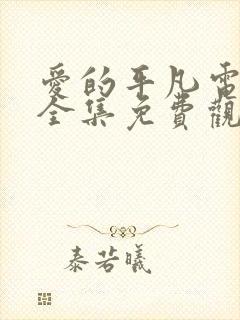 愛的平凡電
全集免費觀
泰若曦